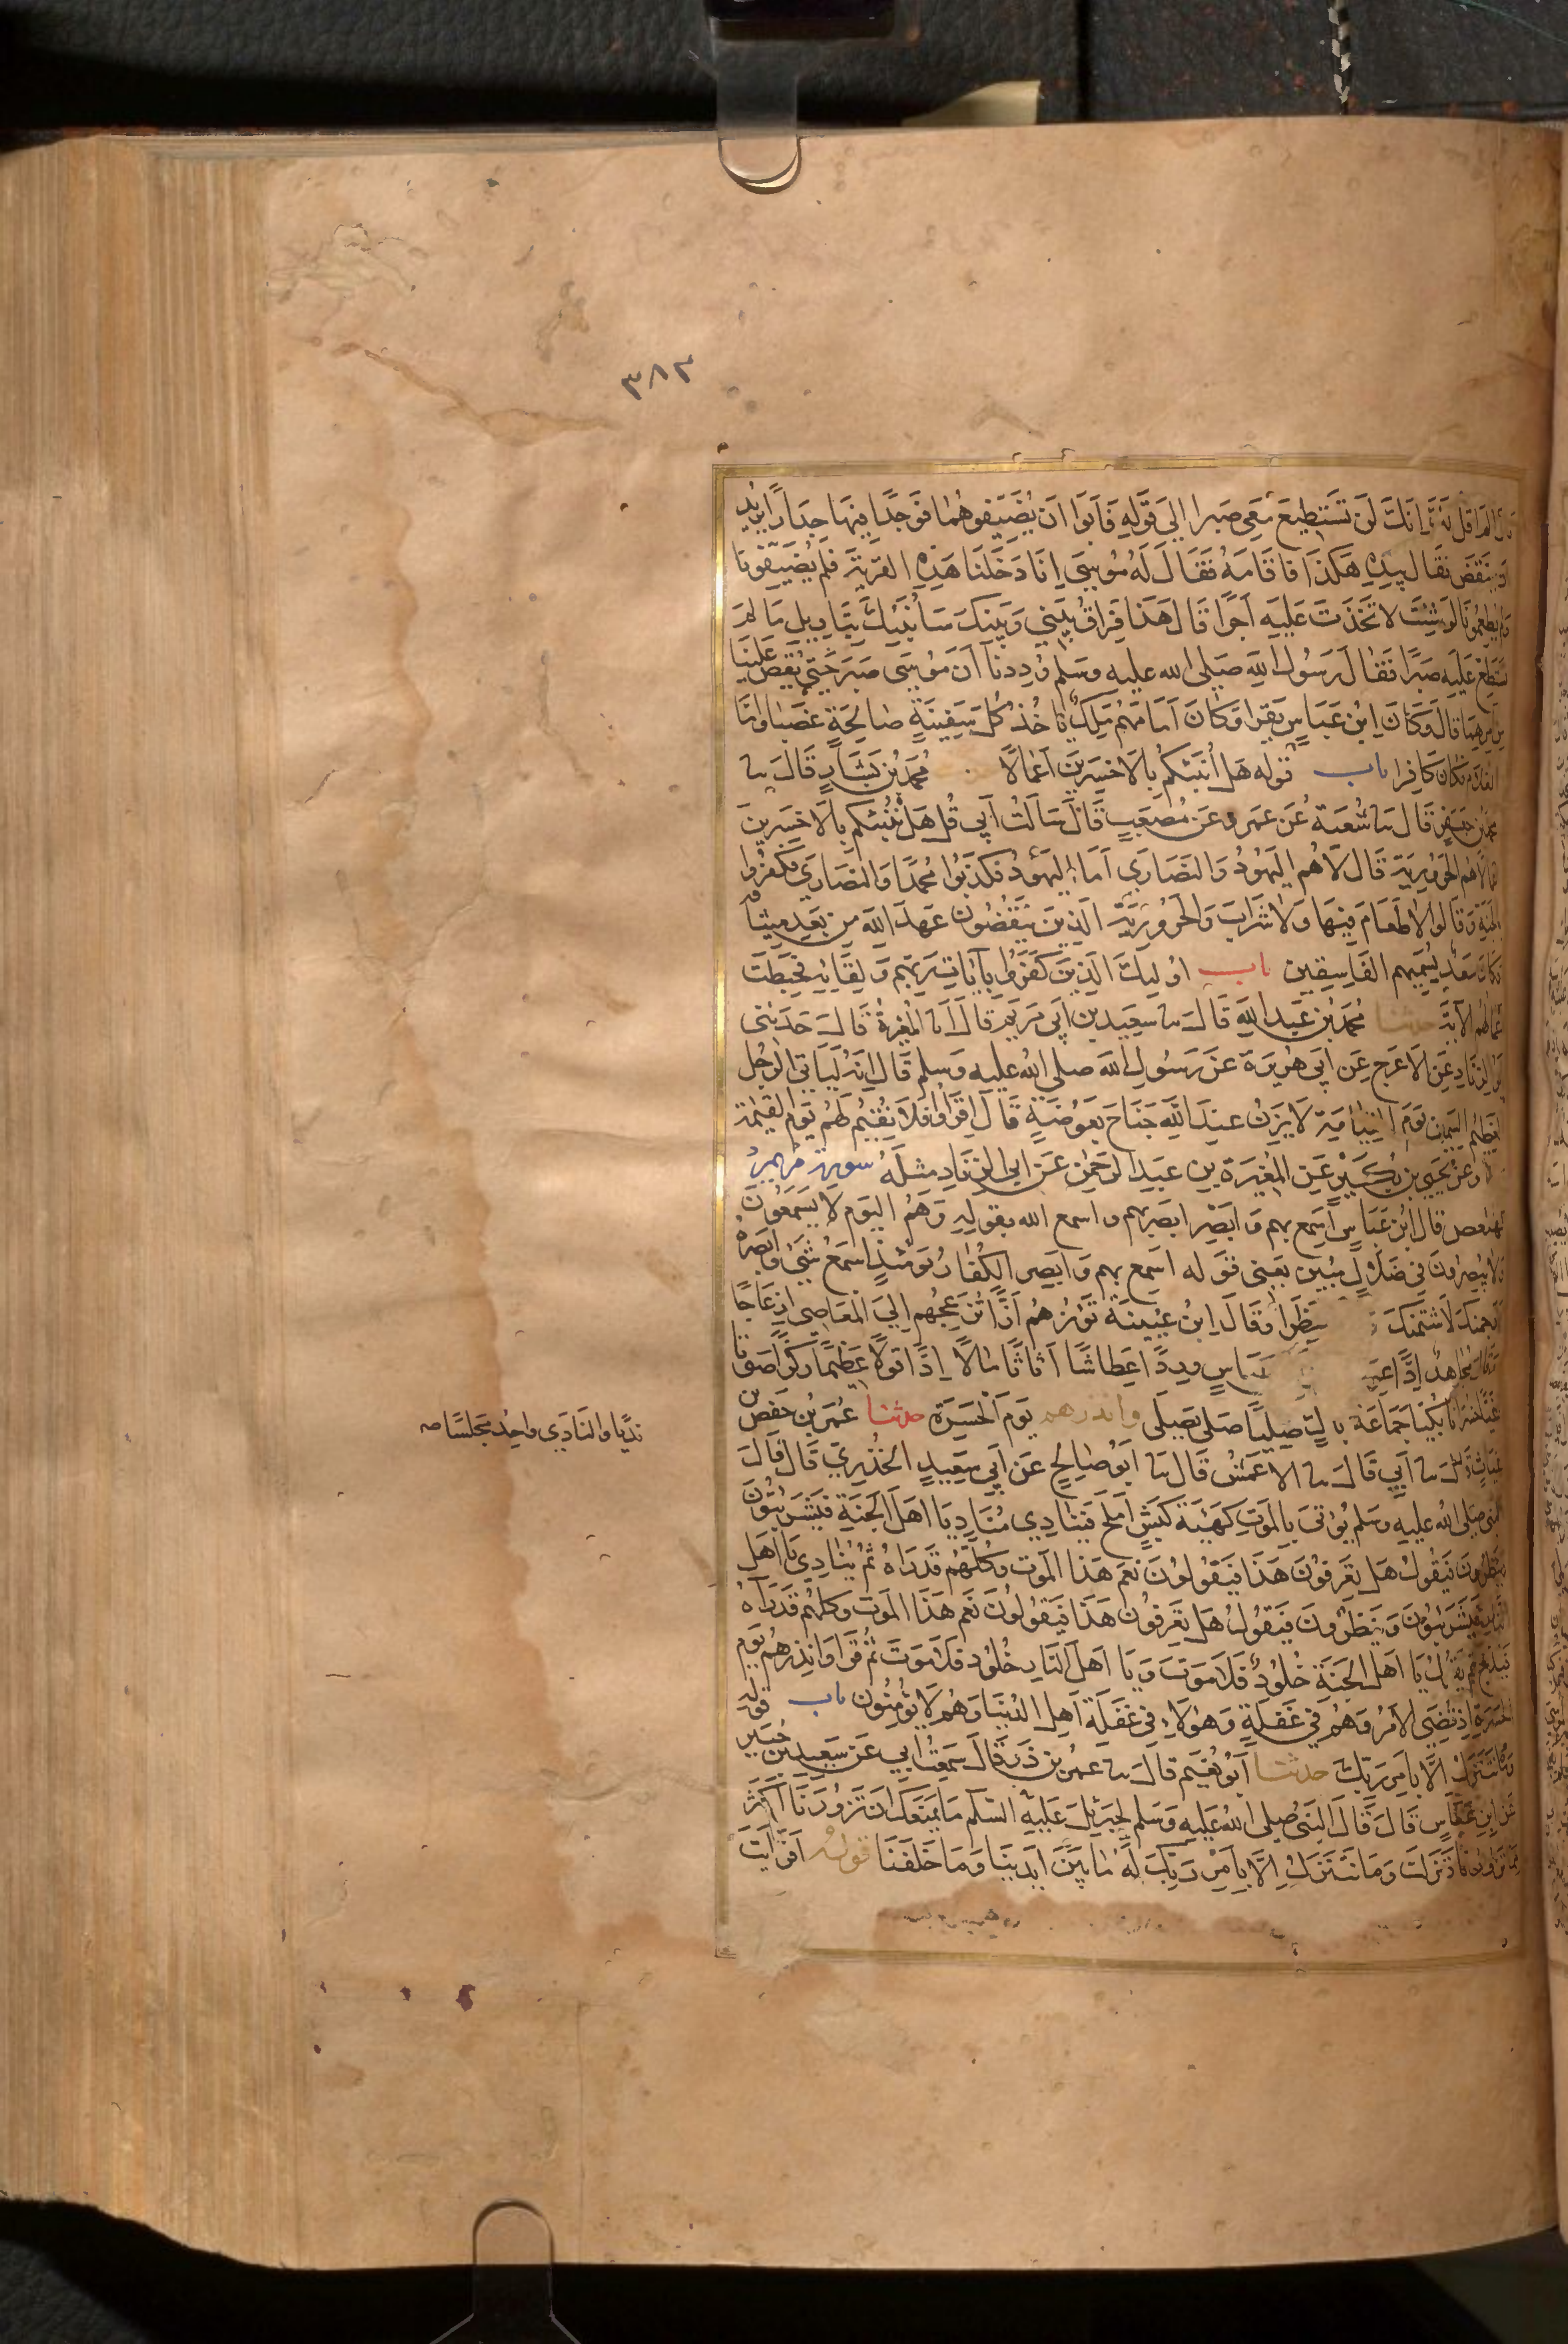 ٣٨٣
قال الم اقل لك انك لن تستطيع معي صبرا الى قوله فابوا ان يضيفوهما فوجدا فيها جدارا يريد
ان ينقض فقال بيده هكذا فاقامه فقال له موسى انا دخلنا هذه القرية فلم يضيفونا
ولم يطعمونا لو شئت لاتخذت عليه اجرا قال هذا فراق بيني وبينك سانبئك بتاويل ما لم
تستطع عليه صبرا فقال رسول الله صلى الله عليه وسلم وددنا ان موسى صبر حتى يقص علينا
من امرهما قال وكان ابن عباس يقرا وكان امامهم ملك ياخذ كل سفينة صالحة غصبا واما
الغلام فكان كافرا باب قوله هل انبئكم بالاخسرين اعمالا محمد بن بشار قال ثنا
محمد بن جعفر قال ثنا شعبة عن عمرو عن مصعب قال سالت ابي قل هل ننبئكم بالاخسرين
اعمالا هم الحرورية قال لا هم اليهود والنصارى اما اليهود فكذبوا محمدا والنصارى فكفروا
بالجنة وقالوا لا طعام فيها ولا شراب والحرورية الذين ينقضون عهد الله من بعد ميثاقه
وكان سعد يسميهم الفاسقين باب اوليك الذين كفروا بآيات ربهم ولقايه فحبطت
اعمالهم الآية حدثنا محمد بن عبد الله قال ثنا سعيد بن ابي مريم قال انا المغيرة قال حدثني
ابو الزناد عن الاعرج عن ابي هريرة عن رسول الله صلى الله عليه وسلم قال انه لياتي الرجل
العظيم السمين يوم القيامة لا يزن عند الله جناح بعوضة قال اقراوا فلا نقيم لهم يوم القيمة
وعن يحيى بن بكير عن المغيرة بن عبد الرحمن عن ابي الزناد مثله سورة مريم
كهيعص قال ابن عباس اسمع بهم وابصر ابصر بهم واسمع الله يقوله وهم اليوم لا يسمعون
ولا يبصرون في ضلال مبين يعني قوله اسمع بهم وابصر الكفار يومئذ اسمع شيء وابصره
لارجمنك لاشتمنك منظرا وقال ابن عيينة تؤزهم ازا تزعجهم الى المعاصي ازعاجا
وقال مجاهد ادا عباس وردا عطاشا اثاثا مالا ادا قولا عظيما ركزا صوتا
بكيا جماعة باك صليا صلي يصلى وانذرهم يوم الحسرة حدثنا عمر بن حفص بن
غياث قال ثنا ابي قال ثنا الاعمش قال ثنا ابو صالح عن ابي سعيد الخدري قال قال
النبي صلى الله عليه وسلم يوتى بالموت كهيئة كبش املح فينادي مناد يا اهل الجنة فيشرئبون
وينظرون فيقول هل تعرفون هذا فيقولون نعم هذا الموت وكلهم قد راه ثم ينادي يا اهل
النار فيشرئبون وينظرون فيقول هل تعرفون هذا فيقولون نعم هذا الموت وكلهم قد راه
فيذبح ثم يقول يا اهل الجنة خلود فلا موت ويا اهل النار خلود فلا موت ثم قرا وانذرهم يوم
الحسرة اذ قضي الامر وهم في غفلة وهولاء في غفلة اهل الدنيا وهم لا يؤمنون باب قوله
وما نتنزل الا بامر ربك حدثنا ابو نعيم قال ثنا عمر بن ذر قال سمعت ابي عن سعيد بن جبير
عن ابن عباس قال قال النبي صلى الله عليه وسلم لجبريل عليه السلم ما يمنعك ان تزورنا اكثر
مما تزورنا فنزلت وما نتنزل الا بامر ربك له ما بين ايدينا وما خلفنا قوله افرايت
نديا والنادي واحد مجلسا صه